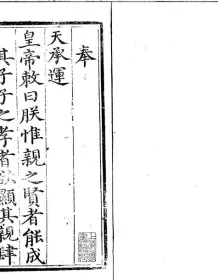 奉
天承運
皇帝敕曰朕惟親之賢者能成
其子子之孝者欲顯其親肆